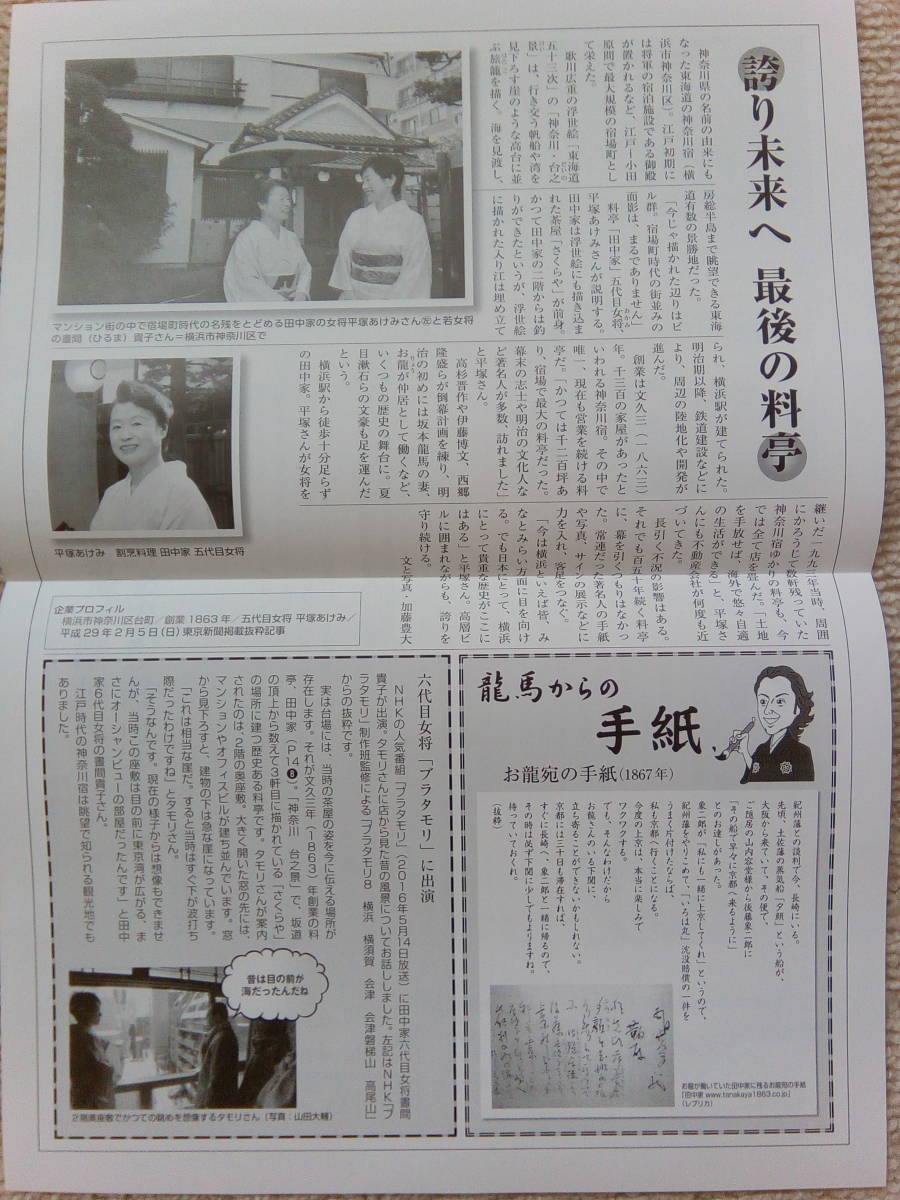 誇り未来へ 最後の料亭
神奈川県の名前の由来にも
なった東海道の神奈川宿（横
浜市神奈川区）。江戸初期に
は将軍の宿泊施設である御殿
が置かれるなど、江戸―小田
原間で最大規模の宿場町とし
て栄えた。
歌川広重の浮世絵「東海道
五十三次」の「神奈川・台之
景」は、行き交う帆船や湾を
見下ろす崖のような高台に並
ぶ旅籠を描く。海を見渡し、
房総半島まで眺望できる東海
道有数の景勝地だった。
「今じゃ描かれた辺りはビ
ル群。宿場町時代の街並みの
面影は、まるでありません」
料亭「田中家」五代目女将、
平塚あけみさんが説明する。
田中家は浮世絵にも描き込ま
れた茶屋「さくらや」が前身。
かつて田中家の二階からは釣
りができたというが、浮世絵
に描かれた入り江は埋め立て
られ、横浜駅が建てられた。
明治期以降、鉄道建設などに
より、周辺の陸地化や開発が
進んだ。
創業は文久三（一八六三）
年。千三百の家屋があったと
いわれる神奈川宿。その中で
唯一、現在も営業を続ける料
亭だ。「かつては千二百坪あ
り、宿場で最大の料亭だった。
幕末の志士や明治の文化人な
ど著名人が多数、訪れました」
と平塚さん。
高杉晋作や伊藤博文、西郷
隆盛らが倒幕計画を練り、明
治の初めには坂本龍馬の妻、
お龍が仲居として働くなど、
いくつもの歴史の舞台に。夏
目漱石らの文豪も足を運んだ
という。
横浜駅から徒歩十分足らず
の田中家。平塚さんが女将を
継いだ一九九三年当時、周囲
にかろうじて数軒残っていた
神奈川宿ゆかりの料亭も、今
では全て店を畳んだ。「土地
を手放せば、海外で悠々自適
の生活ができる」と、平塚さ
んにも不動産会社が何度も近
づいてきた。
長引く不況の影響はある。
それでも百五十年続く料亭
に、幕を引くつもりはなかっ
た。常連だった著名人の手紙
や写真、サインの展示などに
力を入れ、客足をつなぐ。
「今は横浜といえば皆、み
なとみらい方面に目を向け
る。でも日本にとって、横浜
にとって貴重な歴史がここに
はある」と平塚さん。高層ビ
ルに囲まれながらも、誇りを
守り続ける。
文と写真・加藤豊大
マンション街の中で宿場町時代の名残をとどめる田中家の女将平塚あけみさん㊧と若女将
の晝間（ひるま）貴子さん＝横浜市神奈川区で
平塚あけみ 割烹料理 田中家 五代目女将
企業プロフィル
横浜市神奈川区台町／創業 1863 年／五代目女将 平塚あけみ／
平成 29 年 2 月 5 日（日）東京新聞掲載抜粋記事
龍馬からの
手紙
お龍宛の手紙（1867年）
紀州藩との談判で今、長崎にいる。
先頃、土佐藩の蒸気船「夕顔」という船が、
大阪から来ていて、その便で、
ご隠居の山内容堂様から後藤象二郎に
「その船で早々に京都へ来るように」
とのお達しがあった。
象二郎が「私にも一緒に上京してくれ」というので、
紀州藩をやりこめて、「いろは丸」沈没賠償の一件を
うまく片付けたならば、
私も京都へ行くことになる。
今度の上京は、本当に楽しみで
ワクワクする。
でも、そんなわけだから
お龍さんのいる下関に、
立ち寄ることができないかもしれない。
京都には三十日も滞在すれば、
すぐに長崎へ、象二郎と一緒に帰るので、
その時は必ず下関に少しでもよりますね。
待っていておくれ。
（抜粋）
お龍が働いていた田中家に残るお龍宛の手紙
「田中家 www.tanakaya1863.co.jp」
（レプリカ）
六代目女将「ブラタモリ」に出演
ＮＨＫの人気番組「ブラタモリ」（2016年5月14日放送）に田中家六代目女将晝間
貴子が出演。タモリさんに店から見た昔の風景についてお話ししました。左記はＮＨＫ「ブ
ラタモリ」制作班監修による「ブラタモリ8　横浜　横須賀　会津　会津磐梯山　高尾山」
からの抜粋です。
実は台場には、当時の茶屋の姿を今に伝える場所が
存在します。それが文久三年（1863）年創業の料
亭、田中家（P.14❽）。「神奈川　台之景」で、坂道
の頂上から数えて3軒目に描かれている「さくらや」
の場所に建つ歴史ある料亭です。タモリさんが案内
されたのは、2階の奥座敷。大きく開いた窓の先には、
マンションやオフィスビルが建ち並んでいます。窓
から見下ろすと、建物の下は急な崖になっています。
「これは相当な崖だ。すると当時はすぐ下が波打ち
際だったわけですね」とタモリさん。
「そうなんです。現在の様子からは想像もできませ
んが、当時この座敷は目の前に東京湾が広がる、ま
さにオーシャンビューの部屋だったんです」と田中
家6代目女将の晝間貴子さん。
江戸時代の神奈川宿は眺望で知られる観光地でも
ありました。
昔は目の前が
海だったんだね
2階奥座敷でかつての眺めを想像するタモリさん（写真：山田大輔）